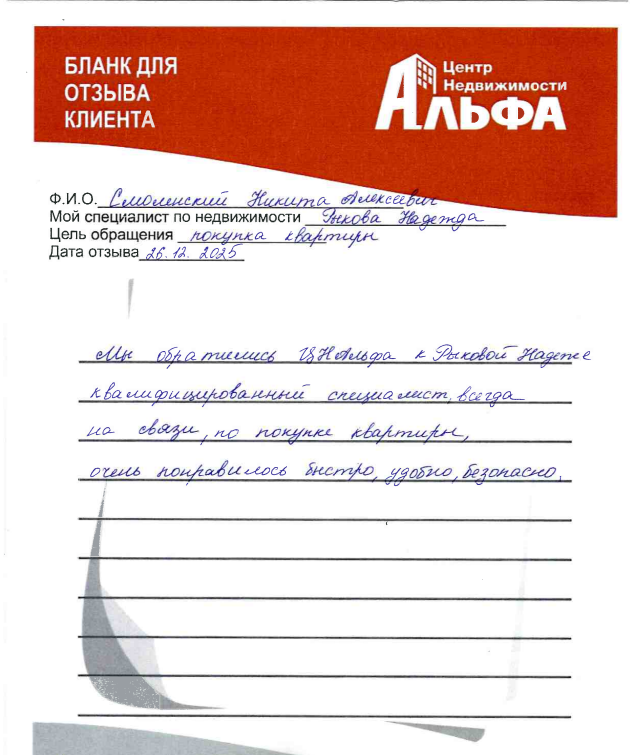 БЛАНК ДЛЯ
ОТЗЫВА
КЛИЕНТА
Центр
Недвижимости
АЛЬФА
Ф.И.О. Смоленский Никита Алексеевич
Мой специалист по недвижимости Рыкова Надежда
Цель обращения покупка квартиры
Дата отзыва 26.12.2025
Мы обратились ЦН Альфа к Рыковой Надежде
квалифицированный специалист, всегда
на связи, по покупке квартиры,
очень понравилось быстро, удобно, безопасно.